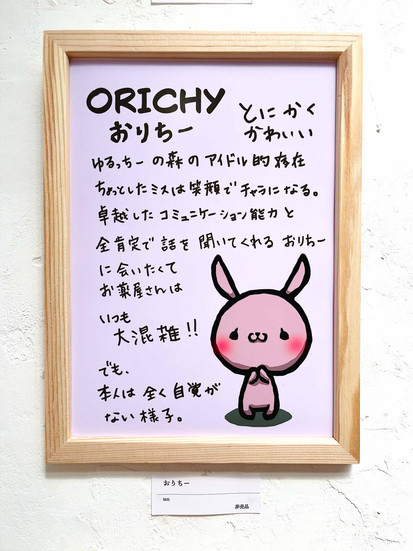 ORICHY
おりちー
とにかく
かわいい
ゆるっちーの森のアイドル的存在
ちょっとしたミスは笑顔でチャラになる。
卓越したコミュニケーション能力と
全肯定で話を聞いてくれるおりちー
に会いたくて
お薬屋さんは
いつも
大混雑!!
でも、
本人は全く自覚が
ない様子。
おりちー
非売品